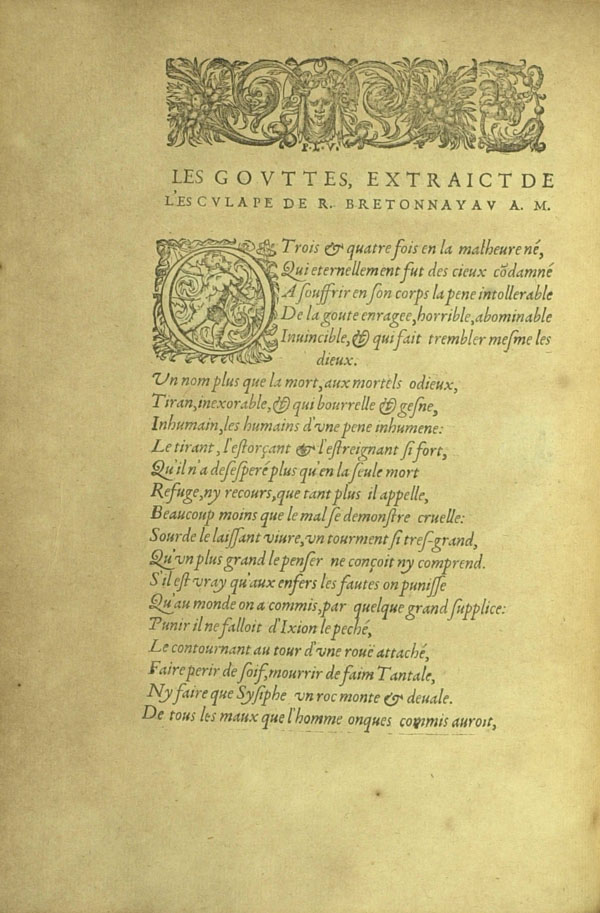 P. L. V.
LES GOVTTES, EXTRAICT DE
L'ESCVLAPE DE R. BRETONNAYAV A. M.
O Trois & quatre fois en la malheure né,
Qui eternellement fut des cieux cõdamné
A souffrir en son corps la pene intollerable
De la goute enragee, horrible, abominable
Inuincible, & qui fait trembler mesme les
dieux.
Vn nom plus que la mort, aux mortels odieux,
Tiran, inexorable, & qui bourrelle & gesne,
Inhumain, les humains d'vne pene inhumene:
Le tirant, l'estorçant & l'estreignant si fort,
Qu'il n'a desesperé plus qu'en la seule mort
Refuge, ny recours, que tant plus il appelle,
Beaucoup moins que le mal se demonstre cruelle:
Sourde le laissant viure, vn tourment si tres-grand,
Qu'vn plus grand le penser ne conçoit ny comprend.
S'il est vray qu'aux enfers les fautes on punisse
Qu'au monde on a commis, par quelque grand supplice:
Punir il ne falloit d'Ixion le peché,
Le contournant au tour d'vne rouë attaché,
Faire perir de soif, mourrir de faim Tantale,
Ny faire que Sysiphe vn roc monte & deuale.
De tous les maux que l'homme onques commis auroit,